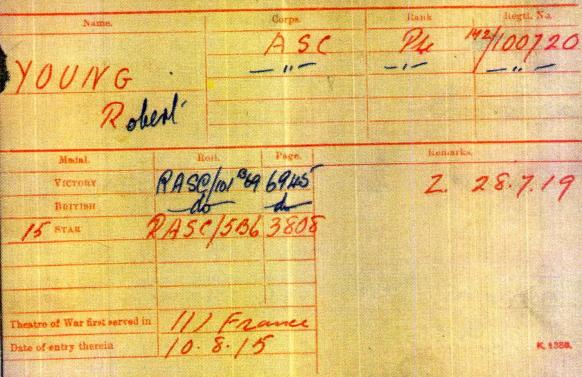 Name. Corps. Rank Regtl. No.
YOUNG ASC Pte M2/100720
Robert. -〃- -〃- -〃-
Medal. Roll. Page. Remarks.
VICTORY RASC/101 B69 6945 Z. 28.7.19
BRITISH do do
15 STAR RASC/5B6 3808
Theatre of War first served in (1) France
Date of entry therein 10.8.15
K. 1380.